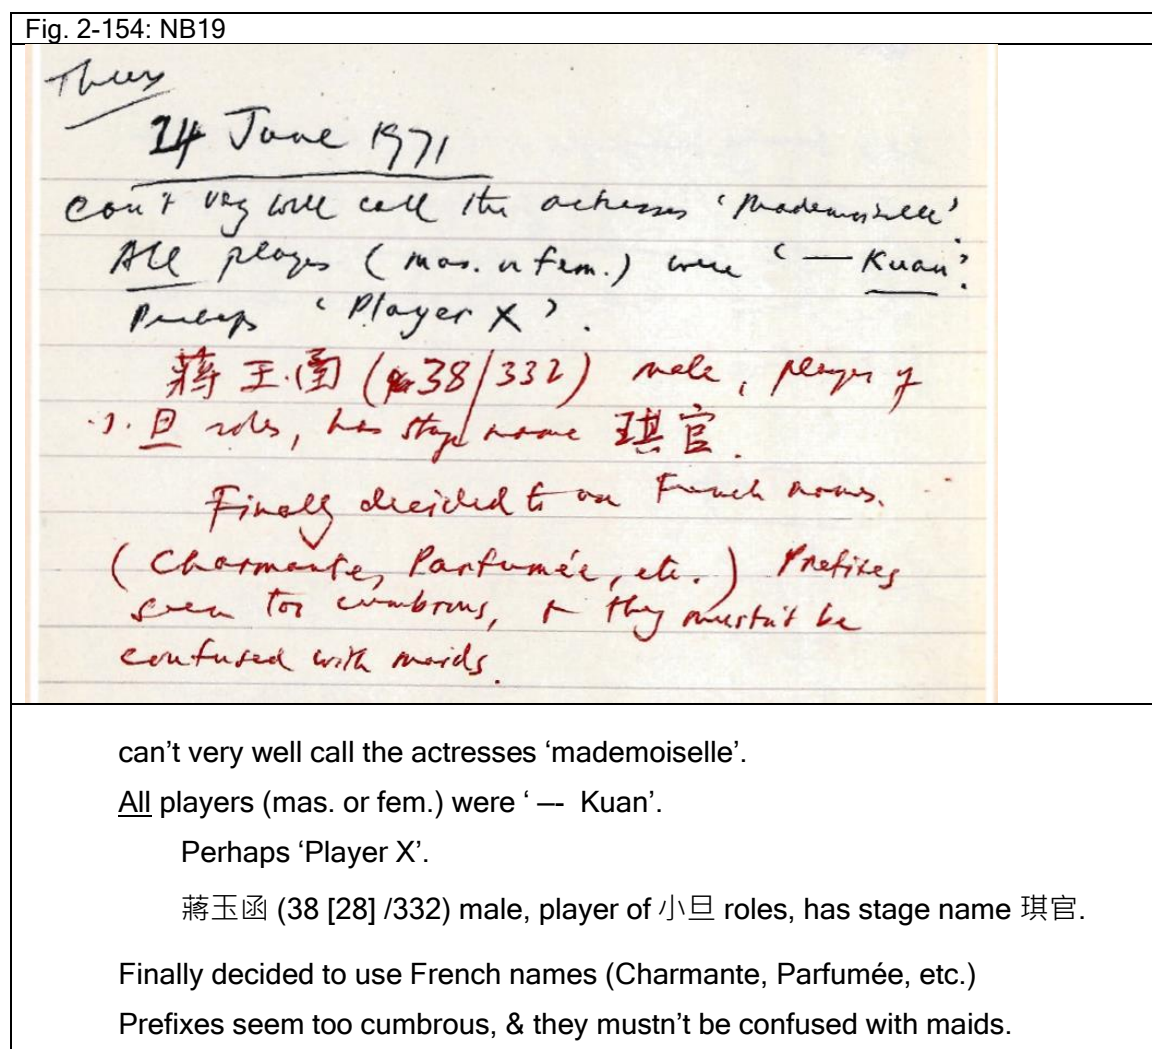 Fig. 2-154: NB19
Thurs
24 June 1971
can't very well call the actresses 'mademoiselle'.
All players (mas. or fem.) were '— Kuan'.
Perhaps 'Player X'.
蔣玉函 (38/332) male, player of
小旦 roles, has stage name 琪官.
Finally decided to use French names.
(Charmante, Parfumée, etc.) Prefixes
seem too cumbrous, & they mustn't be
confused with maids.
can't very well call the actresses ‘mademoiselle’.
All players (mas. or fem.) were ‘ –- Kuan’.
Perhaps ‘Player X’.
蔣玉函 (38 [28] /332) male, player of 小旦 roles, has stage name 琪官.
Finally decided to use French names (Charmante, Parfumée, etc.)
Prefixes seem too cumbrous, & they mustn't be confused with maids.